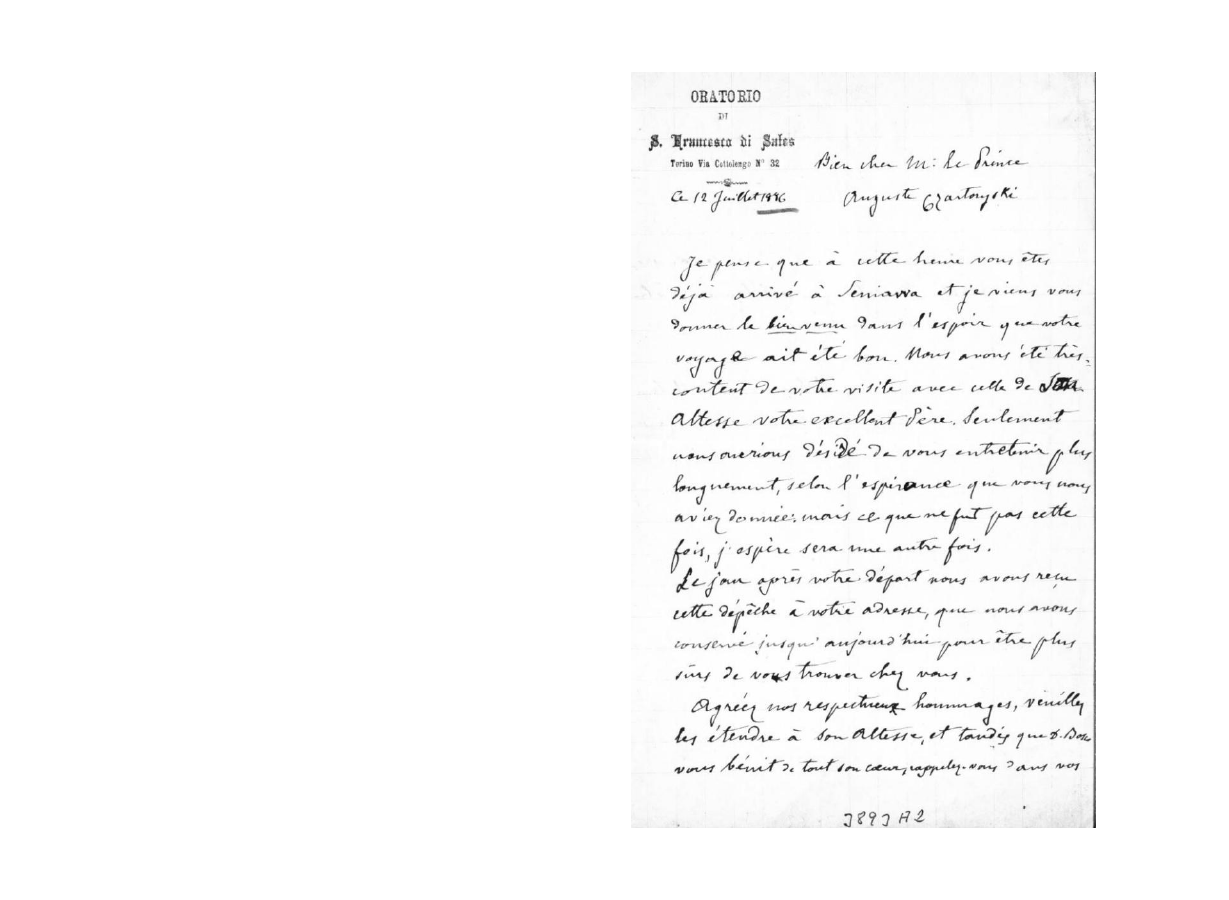 ORATORIO
DI
S. Francesco di Sales
Torino Via Cottolengo N° 32
Bien cher M: le Prince
Ce 12 Juillet 1886
Auguste Czartoryski
Je pense que à cette heure vous êtes
déjà arrivé à Seniawa et je viens vous
donner le bien venu dans l'espoir que votre
voyage ait été bon. Nous avons été très-
content de votre visite avec celle de Son
Altesse votre excellent Père. Seulement
nous aurions désidé de vous entretenir plus
longuement, selon l'espérance que vous nous
aviez donnée: mais ce que ne fut pas cette
fois, j'espère sera une autre fois.
Le jour après votre départ nous avons reçu
cette dépêche à votre adresse, que nous avons
conservé jusqu'aujourd'hui pour être plus
sûrs de vous trouver chez vous.
Agréez nos respectueux hommages, veuillez
les étendre à Son Altesse, et tandis que D. Bosco
vous bénit de tout son cœur, rappelez-vous dans vos
3893 A2